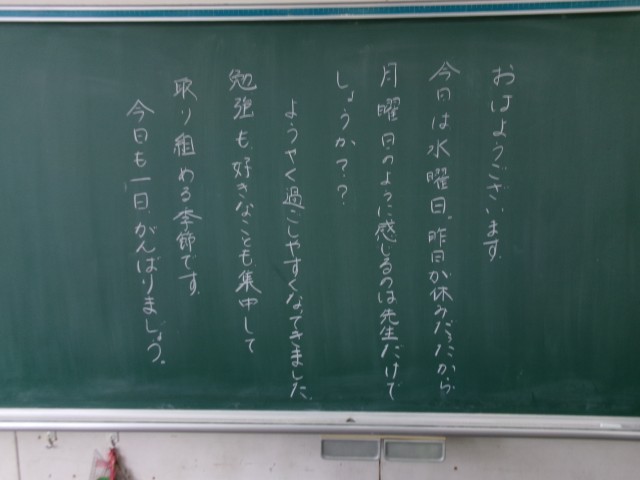 おはようございます。
今日は水曜日。昨日が休みだったから
月曜日のように感じるのは先生だけで
しょうか？？
ようやく過ごしやすくなってきました。
勉強も、好きなことも集中して
取り組める季節です。
今日も一日、がんばりましょう。